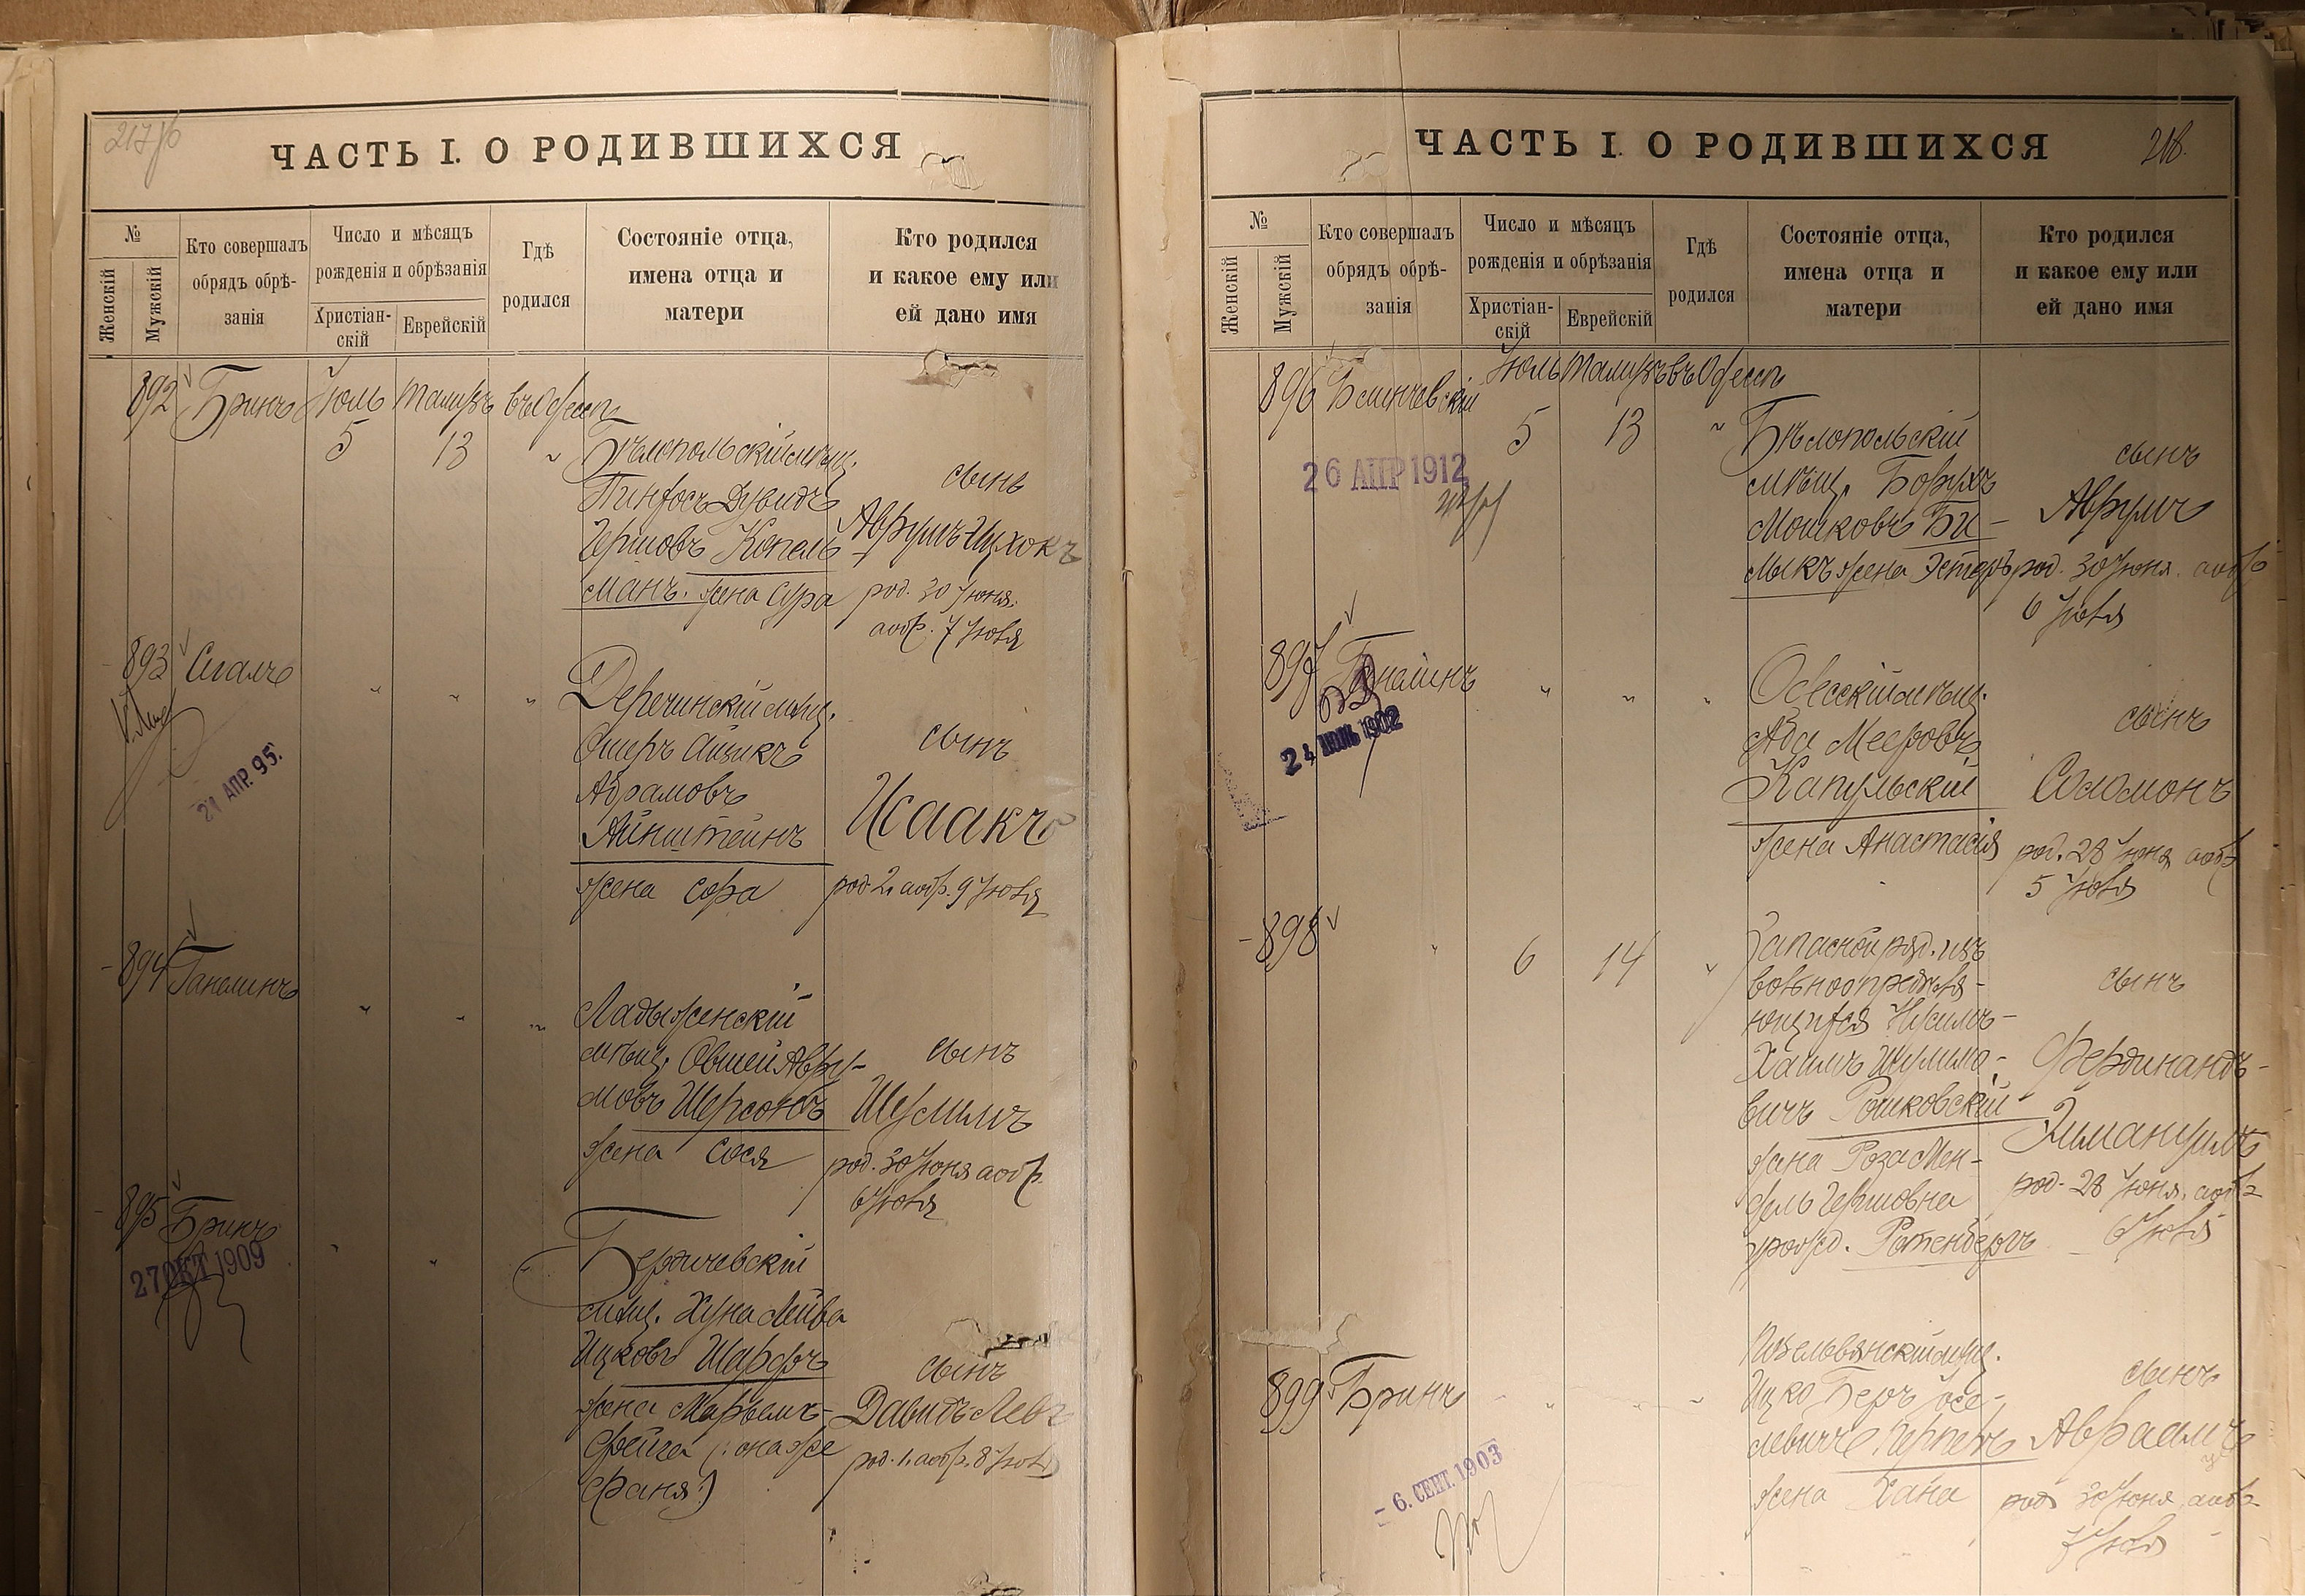 217 об
ЧАСТЬ I. О РОДИВШИХСЯ
№
Женскій
Мужскій
Кто совершалъ
обрядъ обрѣ-
занія
Число и мѣсяцъ
рожденія и обрѣзанія
Христіан-
скій
Еврейскій
Гдѣ
родился
Состояніе отца,
имена отца и
матери
Кто родился
и какое ему или
ей дано имя
892 Бринъ Іюль Тамузъ въ Одессѣ
5 13 " Бѣлопольскій мѣщ.
Пинхосъ Дувидъ
Гершовъ Копель
манъ. жена Сура
сынъ
Аврумъ-Ицхокъ
род. 30 Іюня.
а обр. 7 Іюля
893 Сигалъ " " " Деречинскій мѣщ.
Ошеръ Айзикъ
Абрамовъ
Айнштейнъ
жена Сора
сынъ
Исаакъ
род. 2, а обр. 9 Іюля
21 АПР. 95.
894 Ганелинъ " " " Ладыженскій
мѣщ. Овшей Авру-
мовъ Шерсонъ
жена Сося
сынъ
Шулимъ
род. 30 Іюня а обр.
6 Іюля
895 Бринъ " " " Бердичевскій
мѣщ. Хуна Лейба
Ицковъ Шарфъ
жена Марьемъ-
Фейга (: она же
Фаня:)
сынъ
Давидъ-Левъ
род. 1, а обр. 8 Іюля
27 ОКТ 1909
ЧАСТЬ I. О РОДИВШИХСЯ
218.
№
Женскій
Мужскій
Кто совершалъ
обрядъ обрѣ-
занія
Число и мѣсяцъ
рожденія и обрѣзанія
Христіан-
скій
Еврейскій
Гдѣ
родился
Состояніе отца,
имена отца и
матери
Кто родился
и какое ему или
ей дано имя
896 Іюль Тамузъ въ Одессѣ
5 13 " Бѣлопольскій
мѣщ. Борухъ
Мошковъ Би-
мыкъ жена Эстеръ
сынъ
Аврумъ
род. 30 Іюня. а обр
6 Іюля
26 АПР 1912
897 Ганелинъ " " " Одесскій мѣщ.
Аба Мееровъ
Капульскій
жена Анастасія
сынъ
Соломонъ
род. 28 Іюня а обр
5 Іюля
24 ИЮЛЬ 1902
898 " 6 14 " Запасной ряд. изъ
вольноопредѣля-
ющихся
Хаимъ Шулимо-
вичъ Рашковскій
жена Роза Мен-
дель Гершовна
урожд. Ротенбергъ
сынъ
Фердинандъ-
Эммануилъ
род. 28 Іюня. а обр
6 Іюля
899 Бринъ " " " мѣщ.
Ицко Беръ Іосе-
левичъ
жена Хана
сынъ
Авраамъ
род 30 Іюня, а обр
7 Іюля
- 6. СЕНТ. 1903